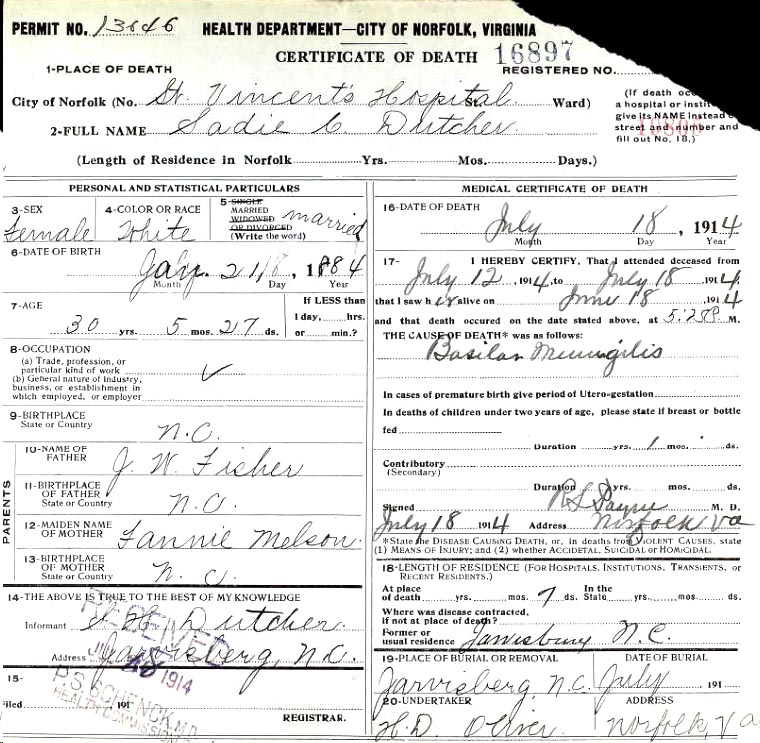 PERMIT NO. 13646 HEALTH DEPARTMENT—CITY OF NORFOLK, VIRGINIA
CERTIFICATE OF DEATH 16897
1-PLACE OF DEATH REGISTERED NO.
City of Norfolk (No. St. Vincent's Hospital St. Ward)
(If death occ
a hospital or instit
give its NAME instead o
street and number and
fill out No. 18.)
2-FULL NAME Sadie C. Dutcher
(Length of Residence in Norfolk Yrs. Mos. Days.)
PERSONAL AND STATISTICAL PARTICULARS
3-SEX Female
4-COLOR OR RACE White
5-SINGLE
MARRIED
WIDOWED
OR DIVORCED
(Write the word) married
6-DATE OF BIRTH
Jany. 21, 1884
Month Day
7-AGE
30 yrs. 5 mos. 27 ds.
If LESS than
1 day, hrs.
or min.?
8-OCCUPATION
(a) Trade, profession, or
particular kind of work
(b) General nature of industry,
business, or establishment in
which employed, or employer
9-BIRTHPLACE
State or Country N.C.
PARENTS
10-NAME OF
FATHER J. W. Fisher
11-BIRTHPLACE
OF FATHER
State or Country N.C.
12-MAIDEN NAME
OF MOTHER Fannie Melson
13-BIRTHPLACE
OF MOTHER
State or Country N.C.
14-THE ABOVE IS TRUE TO THE BEST OF MY KNOWLEDGE
Informant Dutcher
Address Jarvisberg, N.C.
RECEIVED
1914
P.S. SCHENCK, M.D.
HEALTH COMMISSION
15-
Filed 191
REGISTRAR.
MEDICAL CERTIFICATE OF DEATH
16-DATE OF DEATH
July 18, 1914
Month Day Year
17- I HEREBY CERTIFY, That I attended deceased from
July 12, 1914, to July 18 1914,
that I saw h er alive on June 18 1914
and that death occured on the date stated above, at 5:25 P. M.
THE CAUSE OF DEATH* was as follows:
Basilar Meningitis
In cases of premature birth give period of Utero-gestation
In deaths of children under two years of age, please state if breast or bottle
fed
Duration yrs. 1 mos. ds.
Contributory
(Secondary)
Duration yrs. mos. ds.
Signed R L Payne M. D.
July 18 1914 Address Norfolk Va
*State the DISEASE CAUSING DEATH, or, in deaths from VIOLENT CAUSES, state
(1) MEANS OF INJURY; and (2) whether ACCIDETAL, SUICIDAL or HOMICIDAL.
18-LENGTH OF RESIDENCE (FOR HOSPITALS, INSTITUTIONS, TRANSIENTS, OR
RECENT RESIDENTS.)
At place
of death yrs. mos. 7 ds.
In the
State yrs. mos. ds.
Where was disease contracted,
if not at place of death?
Former or
usual residence Jarvisburg N.C.
19-PLACE OF BURIAL OR REMOVAL DATE OF BURIAL
Jarvisberg, N.C. July 191
20-UNDERTAKER ADDRESS
H.D. Oliver Norfolk, Va